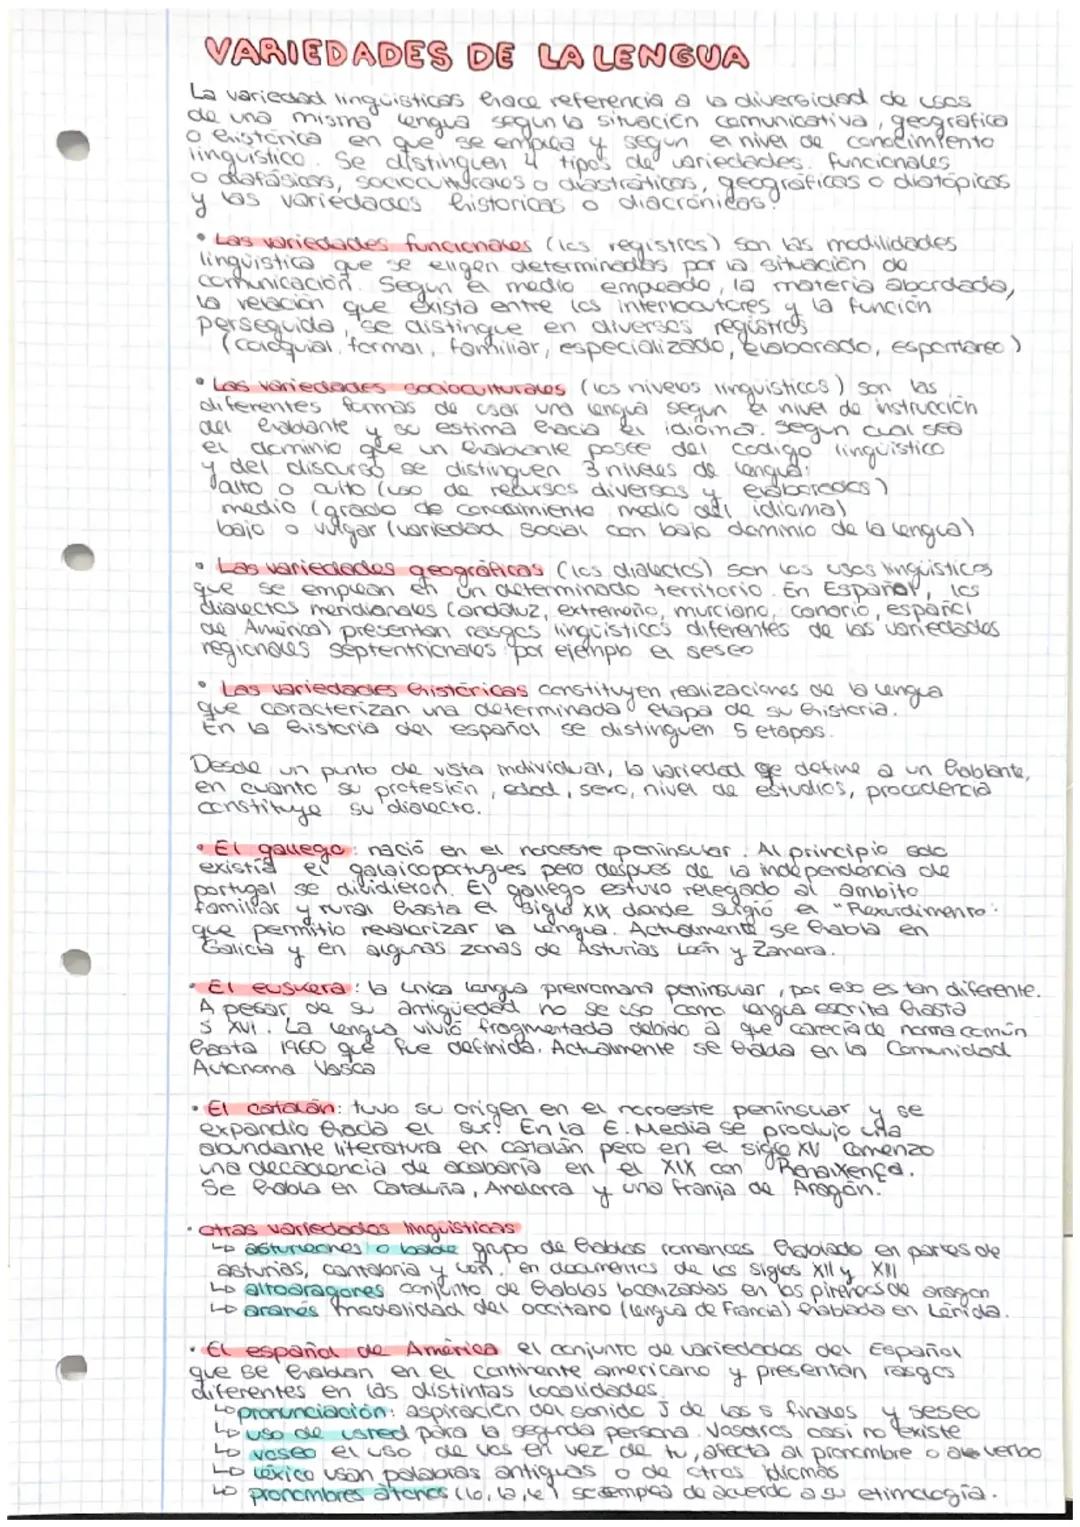 VARIEDADES DE LA LENGUA
La variedad lingüisticas hace referencia a la diversidad de usos
de una misma lengua según la situación comunicativa, geográfica
o histórica en que se emplea y según el nivel de conocimiento
lingüistico. Se distinguen 4 tipos de variedades. funcionales
o diafásicas, socioculturales o diastráticas, geográficas o diatópicas
y las variedades historicas o diacrónicas.
• Las variedades funcionales (los registros) son las modilidades
lingüistica que se eligen determinadas por la situación de
comunicación. Según el medio empleado, la materia abordada,
la relación que exista entre los interlocutores y la función
perseguida, se distingue en diversos registros
(coloquial, formal, familiar, especializado, elaborado, espontaneo)
• Las variedades socioculturales (los niveles lingüisticos) son las
diferentes formas de usar una lengua según el nivel de instrucción
del hablante y su estima hacia el idioma. Según cual sea
el dominio que un hablante posee del codigo lingüistico
y del discurso se distinguen 3 niveles de lengua:
alto o culto (uso de recursos diversos y elaborados)
medio (grado de conocimiento medio del idioma)
bajo o vulgar (variedad social con bajo dominio de la lengua)
• Las variedades geográficas (los dialectos) son los usos lingüisticos
que se emplean en un determinado territorio. En Español, los
dialectos meridionales (andaluz, extremeño, murciano, canario, español
de América) presentan rasgos lingüisticos diferentes de las variedades
regionales septentrionales por ejemplo el seseo
• Las variedades históricas constituyen realizaciones de la lengua
que caracterizan una determinada etapa de su historia.
En la historia del español se distinguen 5 etapas.
Desde un punto de vista individual, la variedad qe define a un hablante,
en cuanto su profesión, edad, sexo, nivel de estudios, procedencia
constituye su dialecto.
• El gallego: nació en el noroeste peninsular. Al principio solo
existía el galaicoportugues pero despues de la independencia de
portugal se dividieron. El gallego estuvo relegado al ambito
familiar y rural hasta el siglo XIX donde surgió el "Rexurdimento"
que permitio revalorizar la lengua. Actualmente se habla en
Galicia y en algunas zonas de Asturias León y Zamora.
• El euskera: la única lengua prerromana peninsular, por eso es tan diferente.
A pesar de su antigüedad no se uso como lengua escrita hasta
s XVI. La lengua vivió fragmentada debido a que carecía de norma común
hasta 1960 que fue definida. Actualmente se habla en la Comunidad
Autonoma Vasca
• El catalán: tuvo su origen en el noroeste peninsular y se
expandio hacia el sur. En la E. Media se produjo una
abundante literatura en catalán pero en el siglo XV comenzo
una decadencia de acabaría en el XIX con Renaixença.
Se habla en Cataluña, Andorra y una franja de Aragón.
• otras variedades lingüisticas
↳ asturleones o bable grupo de hablas romances hablado en partes de
asturias, cantabria y león. en documentos de los siglos XII y XIII
↳ altoaragones conjunto de hablas localizadas en los pirineos de aragon
↳ aranés modalidad del occitano (lengua de Francia) hablada en Lérida.
• El español de América el conjunto de variedades del Español
que se hablan en el continente americano y presentan rasgos
diferentes en las distintas localidades.
↳ pronunciación: aspiración del sonido J de las s finales y seseo
↳ uso de usted para la segunda persona. Vosotros casi no existe
↳ voseo el uso de vos en vez de tu, afecta al pronombre o al verbo
↳ léxico usan palabras antiguas o de otros idiomas
↳ pronombres átonos (lo, la, le) se emplea de acuerdo a su etimología.